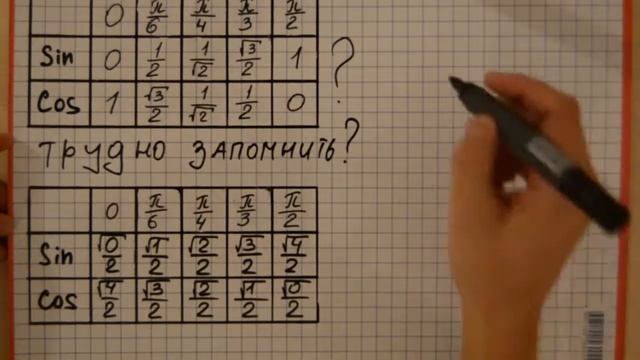 0 π/6 π/4 π/3 π/2
Sin 0 1/2 1/√2 √3/2 1
Cos 1 √3/2 1/√2 1/2 0
?
трудно запомнить?
0 π/6 π/4 π/3 π/2
Sin √0/2 √1/2 √2/2 √3/2 √4/2
Cos √4/2 √3/2 √2/2 √1/2 √0/2